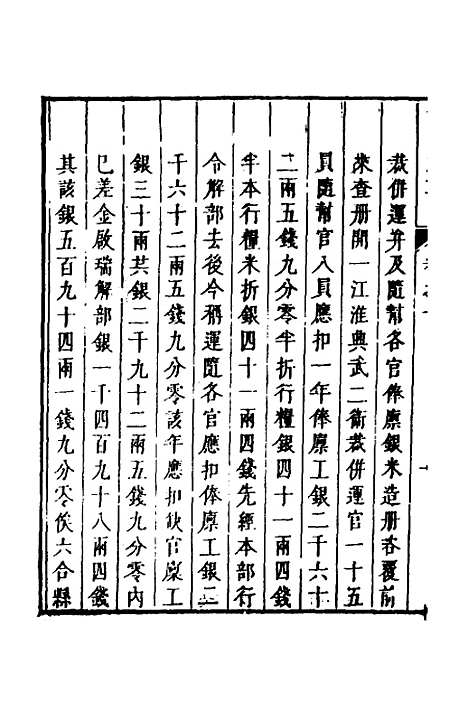 裁併運弁及隨幫各官俸廪銀米造册咨覆前
來查册開一江淮興武二衛裁併運官一十五
員隨幫官八員應扣一年俸廪工銀二千六十
二兩五錢九分零半折行糧銀四十一兩四錢
半本行糧米折銀四十一兩四錢先經本部行
令解部去後今稱運隨各官應扣俸廪工銀二
千六十二兩五錢九分零該年應扣缺官廪工
銀三十兩共銀二千九十二兩五錢九分零内
已差金啟瑞解部銀一千四百九十八兩四錢
其該銀五百九十四兩一錢九分零俟六合縣